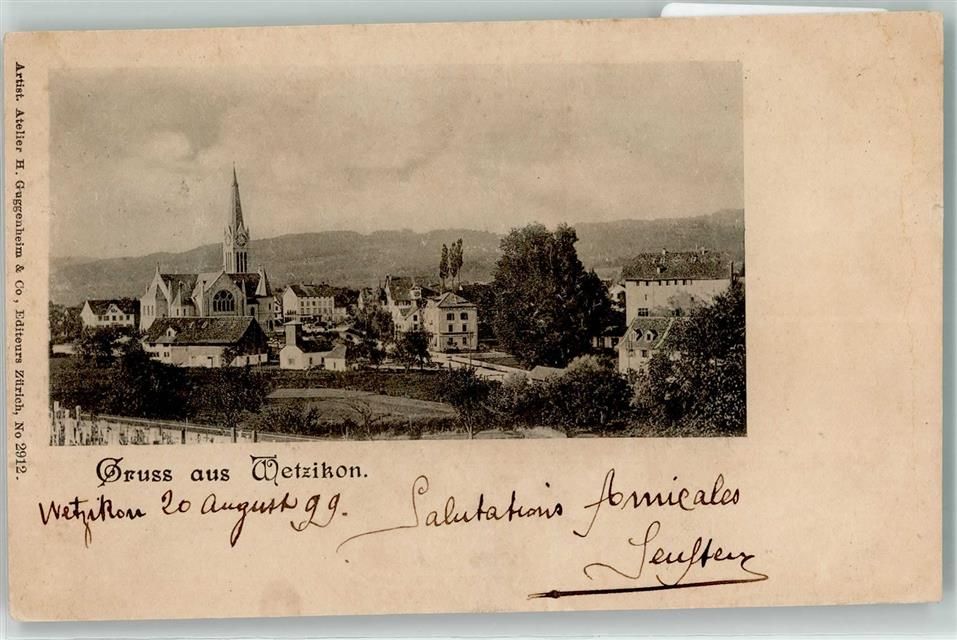 Artist. Atelier H. Guggenheim & Co, Editeurs Zürich, No 2912.
Gruss aus Wetzikon.
Wetzikon 20 August 99. Salutations Amicales